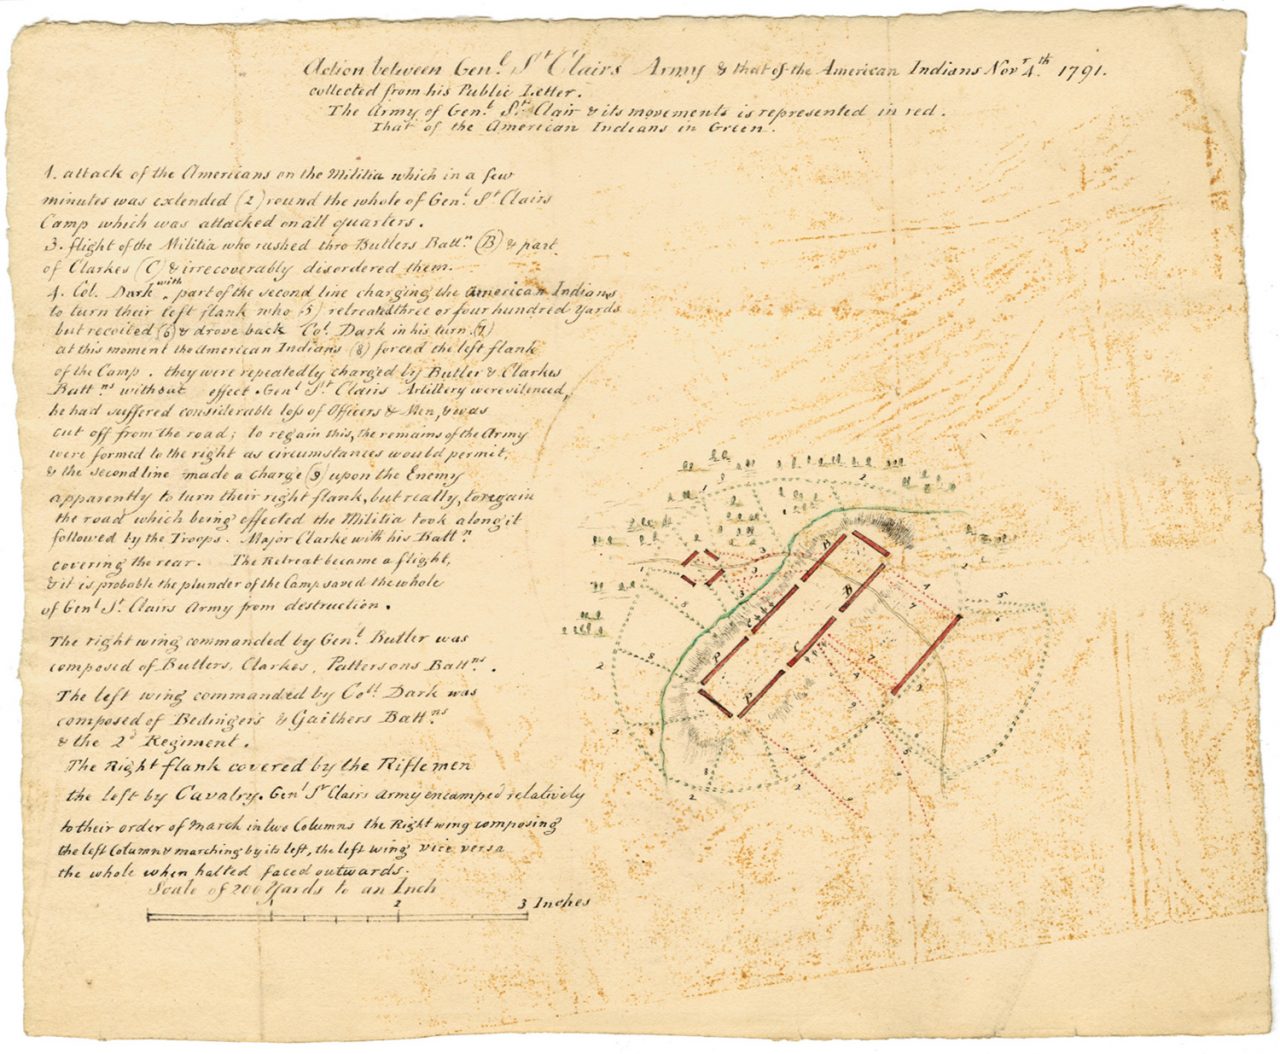 Action between Genl. St Clairs Army & that of the American Indians Novr 4th. 1791.
collected from his Public Letter.
The Army of Genl. St. Clair & its movements is represented in red.
That of the American Indians in Green.
1. attack of the Americans on the Militia which in a few
minutes was extended (2) round the whole of Genl. St Clairs
Camp which was attacked on all quarters.
3. flight of the Militia who rushed thro Butlers Battn. (B) & part
of Clarkes (C) & irrecoverably disordered them.
4. Col. Dark with part of the second line charging the American Indians
to turn their left flank who (5) retreated three or four hundred yards
but recoiled (6) & drove back Col. Dark in his turn. (7)
at this moment the American Indians (8) forced the left flank
of the Camp. they were repeatedly charged by Butler & Clarkes
Battns without effect. Genl St. Clairs Artillery were silenced,
he had suffered considerable loss of Officers & Men, & was
cut off from the road; to regain this, the remains of the Army
were formed to the right as circumstances would permit,
& the second line made a charge (9) upon the Enemy
apparently to turn their right flank, but really, to regain
the road which being effected the Militia took along it
followed by the Troops. Major Clarke with his Battn
covering the rear. The Retreat became a flight,
& it is probable the plunder of the Camp saved the whole
of Genl St. Clairs Army from destruction.
The right wing commanded by Genl. Butler was
composed of Butlers, Clarkes, Pattersons Battns.
The left wing commanded by Coll Dark was
composed of Bedingers & Gaithers Battns
& the 2d Regiment.
The Right flank covered by the Riflemen
the left by Cavalry. Genl St Clairs army encamped relatively
to their order of March in two Columns the Right wing composing
the left Column & marching by its left, the left wing vice versa
the whole when halted faced outwards.
Scale of 200 Yards to an Inch
1 2 3 Inches
B
B
C
C
P
P